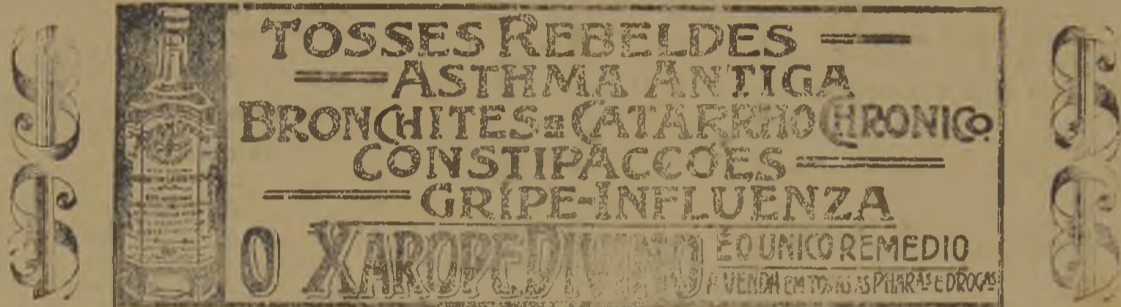 TOSSES REBELDES
ASTHMA ANTIGA
BRONCHITES E CATARRHO CHRONICO
CONSTIPACCÕES
GRIPE-INFLUENZA
O XAROPE DIVINO É O UNICO REMEDIO
A VENDA EM TODAS AS PHARAS E DROGAS